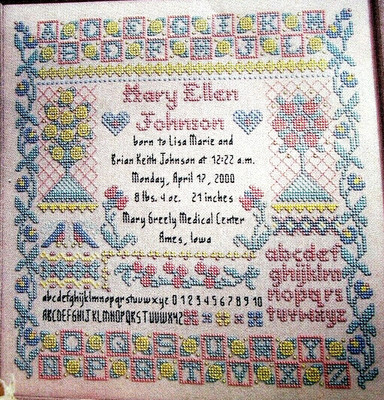 Mary Ellen
Johnson
born to Lisa Marie and
Brian Keith Johnson at 12:22 a.m.
Monday, April 17, 2000
8 lbs. 4 oz. 21 inches
Mary Greely Medical Center
Ames, Iowa
abcdef
ghijklm
nopqrs
tuvwxyz
abcdefghijklmnopqrstuvwxyz 0 1 2 3 4 5 6 7 8 9 10
ABCDEFGHIJKLMNOPQRSTUVWXYZ